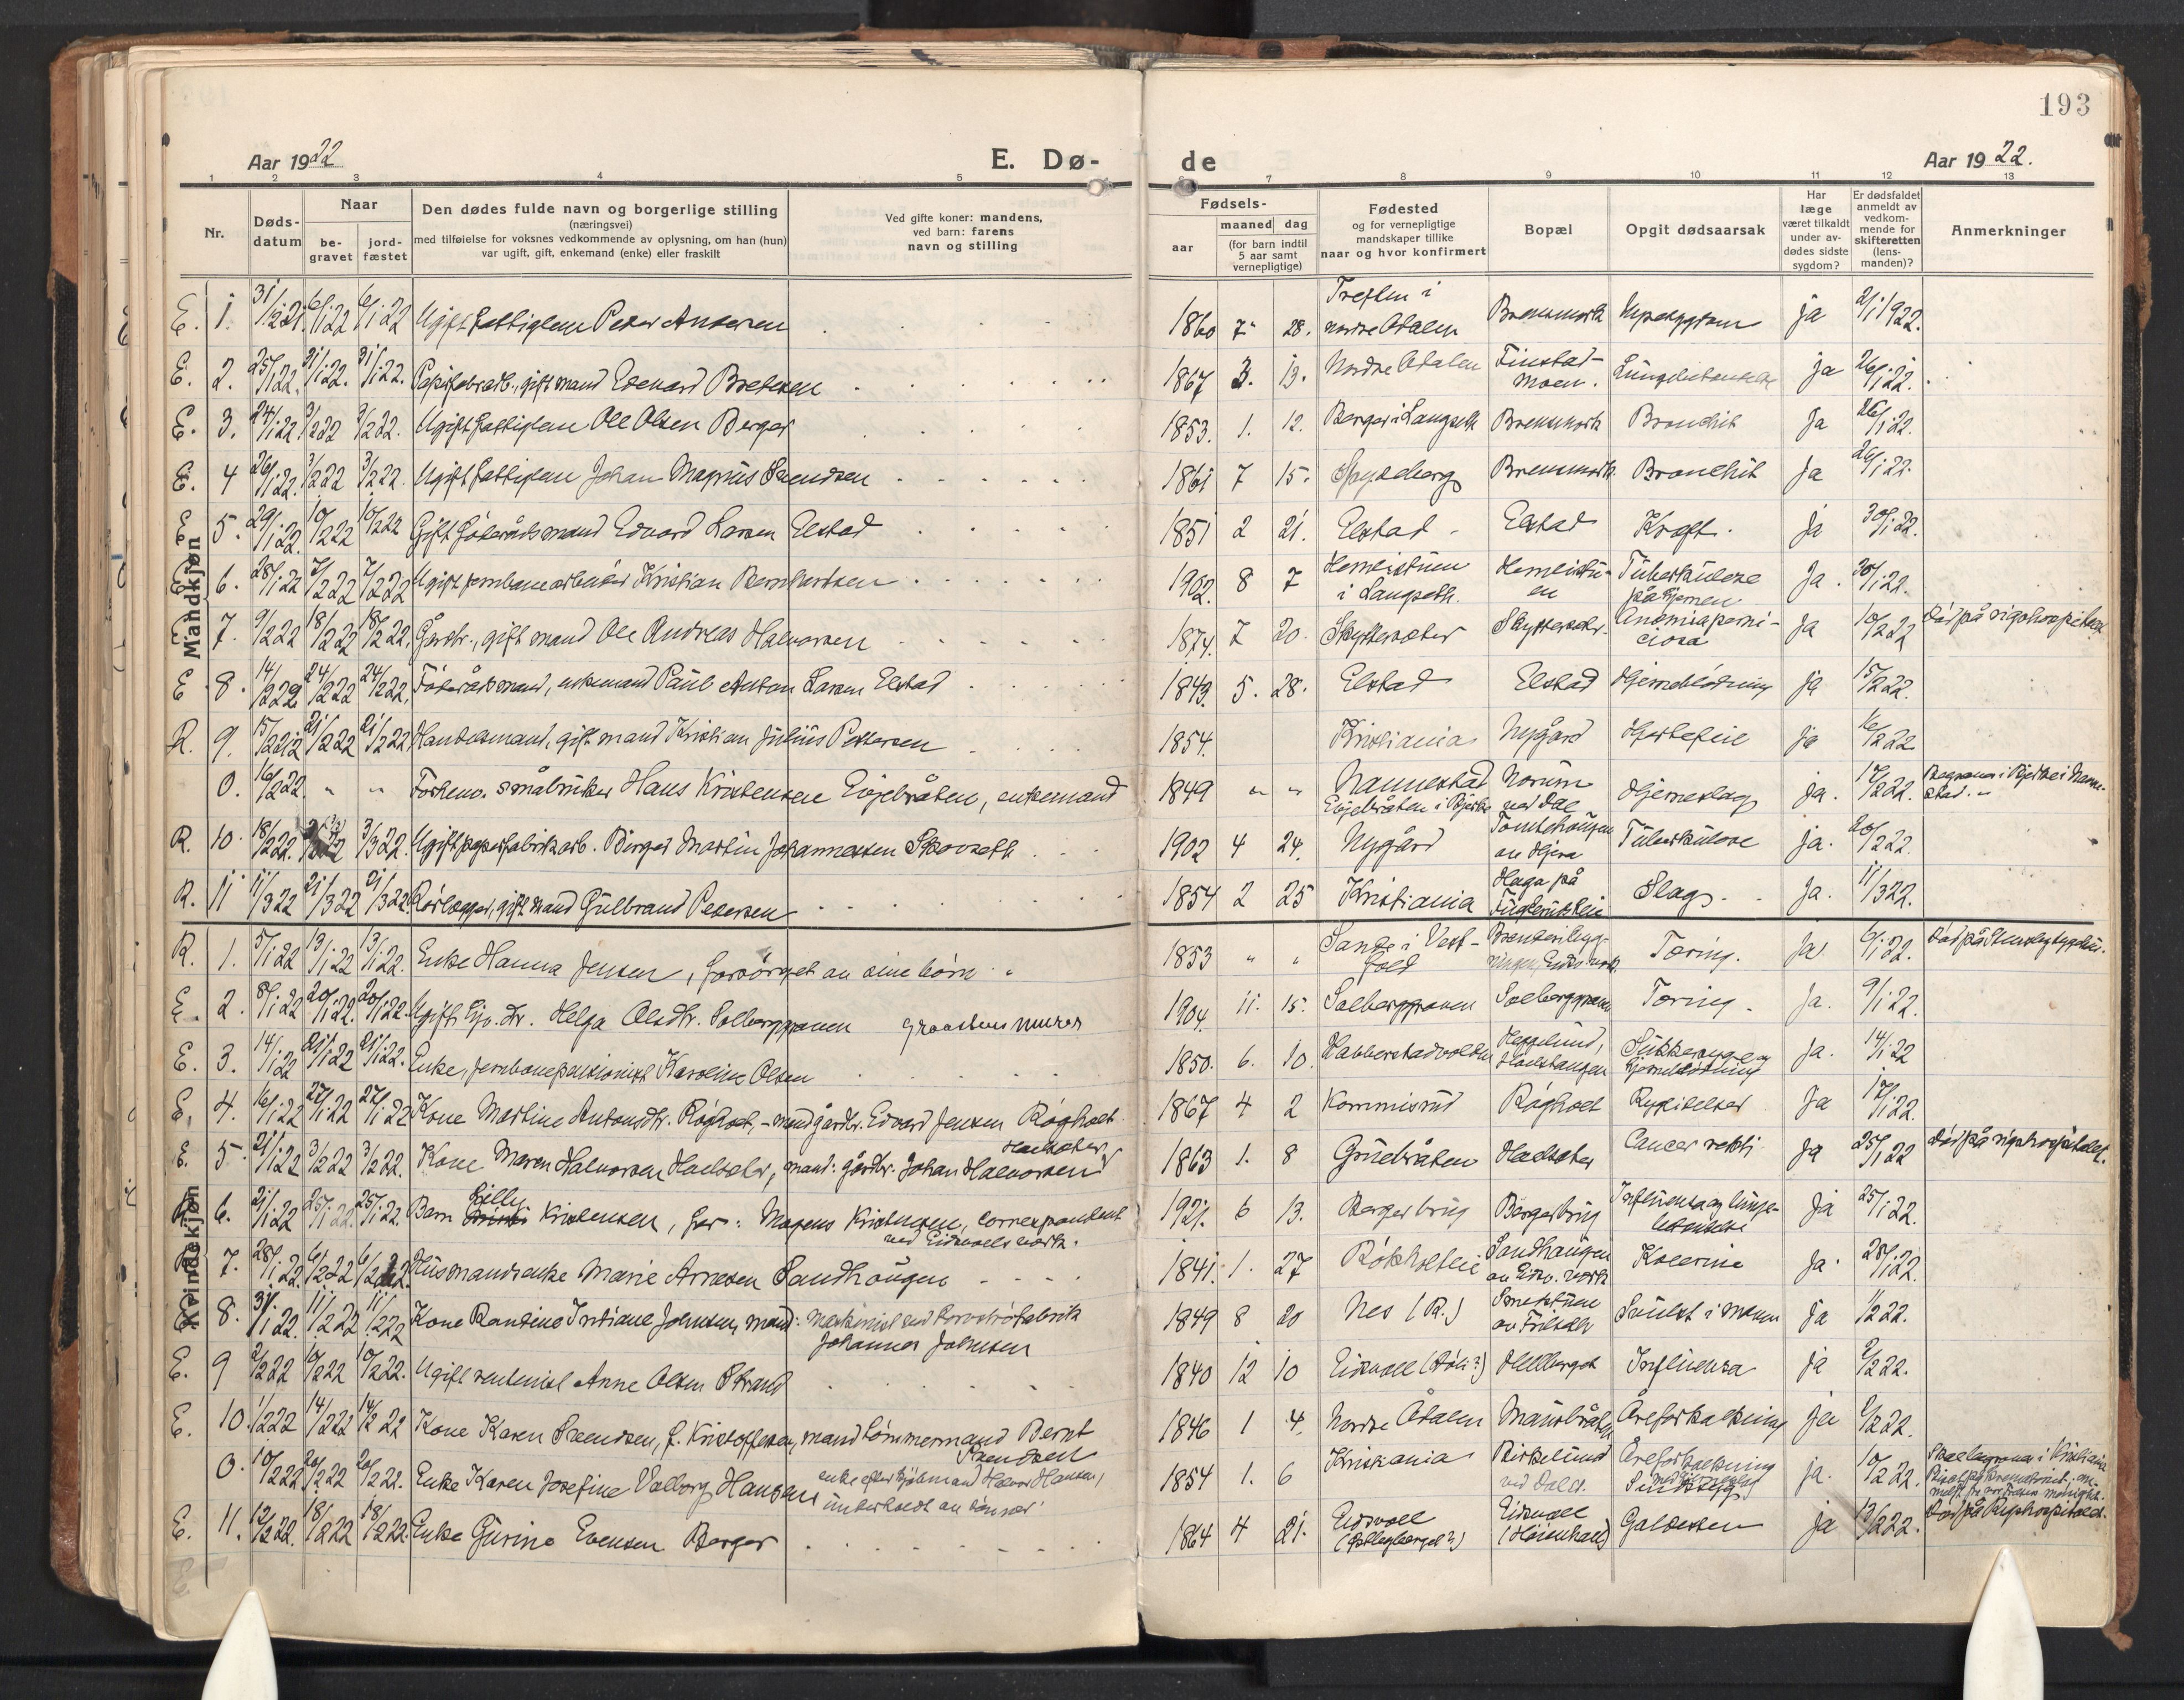 193
Aar 1922
E. Dø-
de
Aar 1922.
1 2 3 4 5 6 7 8 9 10 11 12 13
Nr.
Døds-
datum
Naar
be-
gravet
jord-
fæstet
Den dødes fulde navn og borgerlige stilling
(næringsvei)
med tilføielse for voksnes vedkommende av oplysning, om han (hun)
var ugift, gift, enkemand (enke) eller fraskilt
Ved gifte koner: mandens,
ved barn: farens
navn og stilling
Fødsels-
aar
maaned dag
(for barn indtil
5 aar samt
vernepligtige)
Fødested
og for vernepligtige
mandskaper tillike
naar og hvor konfirmert
Bopæl
Opgit dødsaarsak
Har
læge
været tilkaldt
under av-
dødes sidste
sygdom?
Er dødsfaldet
anmeldt av
vedkom-
mende for
skifteretten
(lens-
manden)?
Anmerkninger
Mandkjøn
E. 1. 31/12 21. 6/1 22 6/1 22 Ugift fattiglem Peder Andersen 1860 7 28. nordre Odalen ja 2/1 1922.
E. 2. 25/1 22. 31/1 22. 31/1 22. gift mand Edevard 1867 3. 13. Nordre Odalen Finstad-
moen. ja 26/1 22.
E. 3. 24/1 22 3/2 22 3/2 22. Ugift fattiglem Ole Olsen Berger 1853. 1. 12. Berger i Langseth Bronchit Ja 26/1 22.
E. 4 26/1 22. 3/2 22 3/2 22. Ugift fattiglem Johan Magnus Svendsen 1861 7 15. Spydeberg Bronchit Ja 26/1 22.
E 5. 29/1 22. 10/2 22 10/2 22 Gift føderådsmand Edvard Larsen Elstad 1851 2 21. Elstad Elstad Kræft. Ja 30/1 22.
E 6. 28/1 22 7/2 22 7/2 22 Ugift jernbanearbeider Kristian Bernhardsen 1902. 8 7
i Langseth. Tuberkulose
på hjernen Ja. 30/1 22.
7. 9/2 22 18/2 22 18/2 22. Gårdbr., gift mand Ole Andreas Halvorsen 1874. 7 20. Anæmia perni-
ciosa Ja 10/2 22 Død på rigshospitalet
E 8. 14/2 22 24/2 22 24/2 22. Føderådsmand, enkemand Paul Anton Larsen Elstad 1843. 5. 28. Elstad Elstad Hjerneblødning Ja 15/2 22.
R. 9. 15/2 22 21/2 22 21/2 22 Handelsmand, gift mand Kristian Julius Pettersen 1854. Kristiania Nygård Hjertefeil Ja 16/2 22
0. 16/2 22. " " Forhenv. småbruker Hans Kristensen Evjebråten, enkemand 1849 " " Nannestad
Evjebråten i Bjerke Norum
ved Dal Hjerneslag ja. 17/2 22. Begraves i Bjerke i Nanne-
stad.
R. 10. 18/2 22. 3/3 22. Ugift papirfabrikarb. Birger Martin Johannessen Skovseth 1902 4 24. Nygård Tomtehaugen
av Hjera Tuberkulose ja. 20/2 22.
R. 11 11/3 22 21/3 22 21/3 22. Rørlægger, gift mand Gulbrand Pedersen 1854 2 25 Kristiania Haga på Slag Ja. 11/3 22.
Kvindekjøn
R. 1. 5/1 22 13/1 22 13/1 22. Enke Hanna Jensen, forsørget av sine børn 1853 " " Sande i Vest-
fold Tæring. Ja 6/1 22.
E. 2. 8/1 22 20/1 22. 20/1 22. Ugift tj. Helga Olsdtr. Solberggraven graastensmurer 1904. 11. 15. Solberggraven Solberggraven Tæring. Ja. 9/1 22.
E. 3. 14/1 22 21/1 22 21/1 22. Enke, jernbanepensionist Karoline Olsen 1850. 6. 10. Habberstadvolden Sukkersyge og
hjerneblødning Ja. 14/1 22
E. 4. 16/1 22 27/1 22 27/1 22 Kone Martine Antonsdtr. Røgholt, - mand gårdbr. Edvard Jensen Røgholt 1867 4 2 Kommisrud Røgholt Ja 17/1 22.
E. 5. 21/1 22 3/2 22 3/2 22. Kone Maren Halvorsen Holsæter, mand: gårdbr. Johan Halvorsen Holsæter 1863 1. 8 Gruebråten Holsæter Cancer rekti Ja 25/1 22 Død på rigshospitalet.
6. 21/1 22 25/1 22. 25/1 22. Barn Lilly Kristensen, far: Mogens Kristensen, correspondent
ved Eidsvolls værk. 1921. 6 13. Bergerbrug Bergerbrug Influensa og lunge-
betændelse Ja 25/1 22.
R 7. 28/1 22. 6/2 22 6/2 22. Husmandsenke Marie Arnesen Sandhaugen 1841. 1. 27 Sandhaugen
av Eidsv. værk Kolerine Ja. 28/1 22.
E 8. 31/1 22. 11/2 22 11/2 22 Kone Randine Johnsen, mand: maskinist ved torvstrøfabrik
Johannes Johnsen 1849 8 20 Nes (R.) Svulst i maven Ja 1/2 22.
E. 9 2/2 22 10/2 22 10/2 22. Ugift rentenist Anne Olsen Strand 1840 12 10 Eidsvoll Influensa Ja 2/2 22.
E. 10. 1/2 22 14/2 22 14/2 22 Kone Karen Svendsen, f. Kristoffersen, mand tømmermand Bernt
Svendsen 1846 1 4. Nordre Odalen Mausbråten Åreforkalkning ja 2/2 22.
0. 10/2 22 20/2 22 20/2 22. Enke Karen Josefine Valborg Hansen enke efter Hansen,
underholdt av sønner 1854 1. 6 Kristiania Birkelund
ved Dal st. Åreforkalkning ja. 10/2 22. Skal begraves i Kristiania
E. 11. 12/2 22. 18/2 22 18/2 22. Enke Gurine Evensen Berger 1864 4 21. Eidsvoll Eidsvoll Galdesten ja 13/2 22. Død på Rigshospitalet.